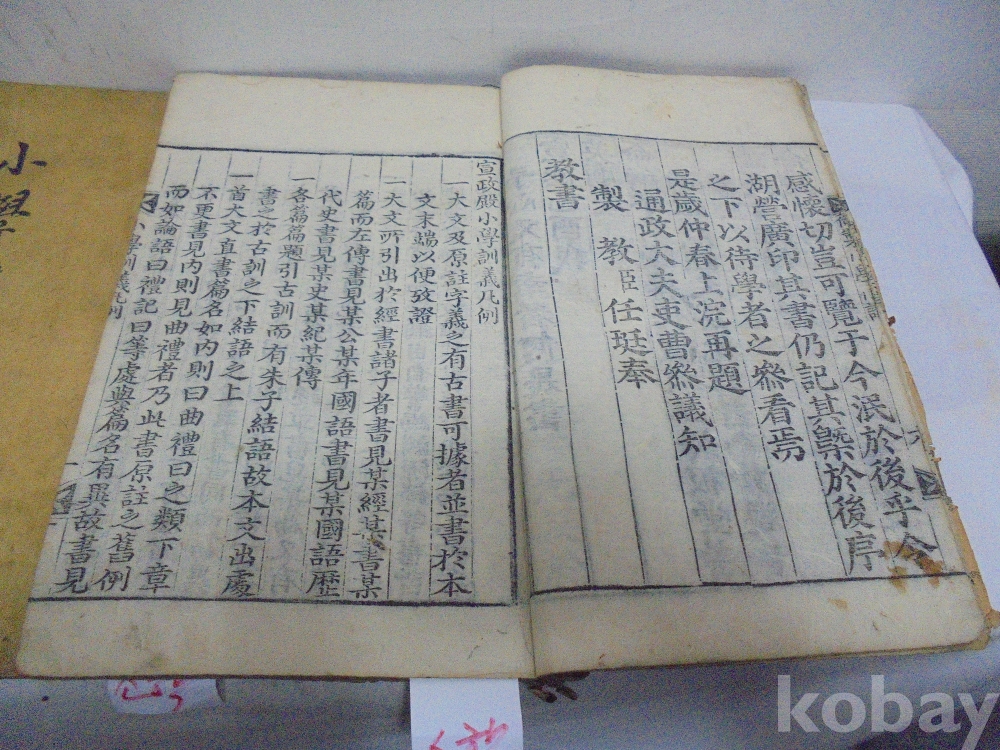 感懷切豈可覽于今泯於後乎今
湖營廣印其書仍記其槩於後序
之下以待學者之叅看焉
是歲仲春上浣再題
通政大夫吏曹叅議知
製 教臣任珽奉
教書
宣政殿小學訓義凡例
一大文及原註字義之有古書可據者並書於本
文末端以便攷證
一大文所引出於經書諸子者書見某經某書某
篇而左傳書見某公某年國語書見某國語歷
代史書見某史某紀某傳
一各篇篇題引古訓而有朱子結語故本文出處
書之於古訓之下結語之上
一首大文直書篇名如內則曰曲禮曰之類下章
不更書見內則見曲禮者乃此書原註之舊例
而如論語曰禮記曰等處與篇名有異故書見
小學訓義凡例
一
小學
kobay